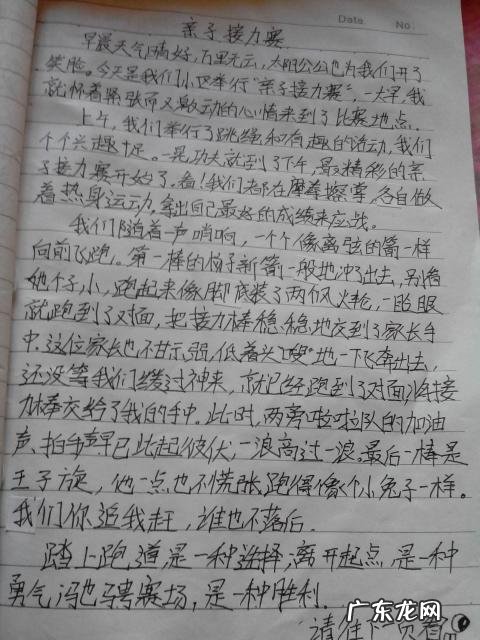 Date. No.
亲子接力赛
早晨天气晴好,万里无云,太阳公公也为我们开了
笑脸。今天是我们小区举行“亲子接力赛”,一大早,我
就怀着紧张而又激动的心情来到了比赛地点。
上午,我们举行了跳绳和有趣的活动,我们
个个兴趣十足。一晃功夫就到了下午,最精彩的亲
子接力赛开始了。看!我们都在摩拳擦掌,各自做
着热身运动,拿出自己最好的成绩来应战。
我们随着一声哨响,一个个像离弦的箭一样
向前飞跑。第一棒的杨子新箭一般地冲了出去,别看
她个子小,跑起来像脚底装了两个风火轮,一眨眼
就跑到了对面,把接力棒稳稳地交到了家长手
中。这位家长也不甘示弱,低着头“嗖”地一下飞奔出去,
还没等我们缓过神来,就已经跑到了对面,将接
力棒交给了我的手中。此时,两旁啦啦队的加油
声、拍手声早已此起彼伏,一浪高过一浪。最后一棒是
王子旋,他一点也不慌张,跑得像个小兔子一样。
我们你追我赶,谁也不落后.
踏上跑道,是一种选择;离开起点,是一种
勇气;驰骋赛场,是一种胜利.
请往下一页看。
广东龙网